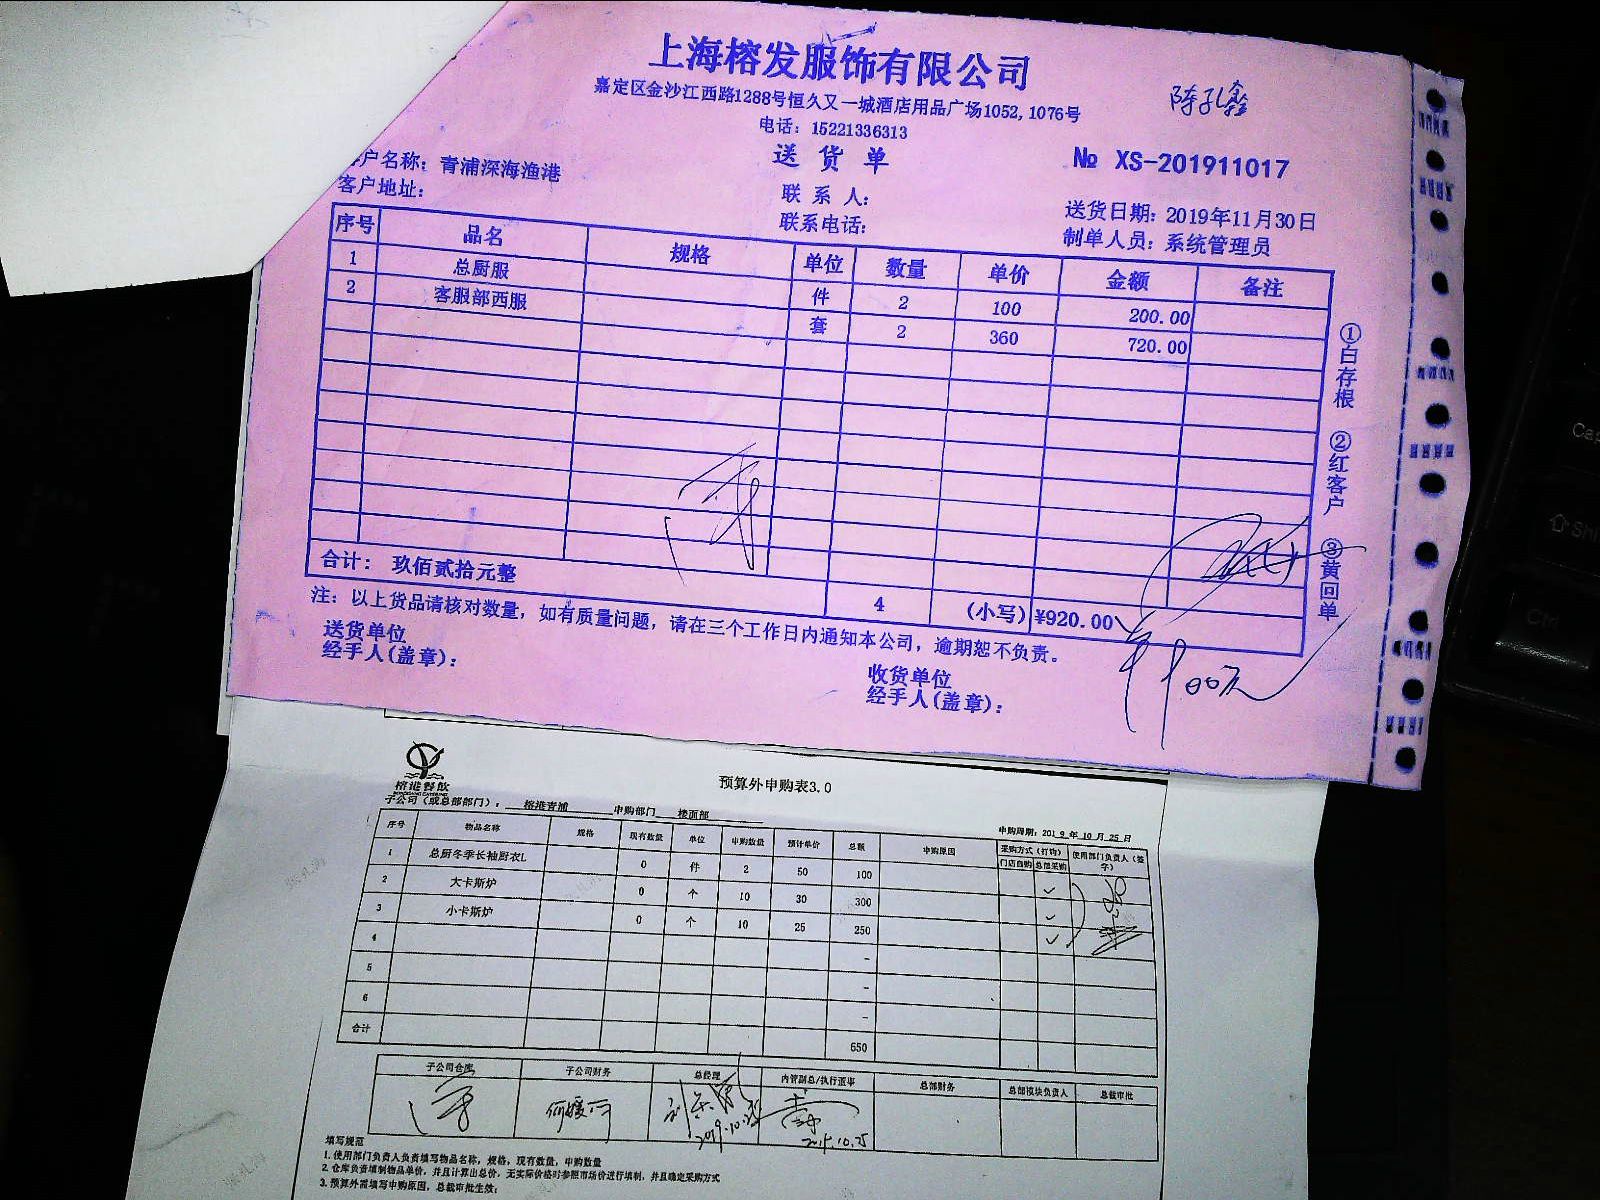 上海榕发服饰有限公司
嘉定区金沙江西路1288号恒久又一城酒店用品广场1052, 1076号
陈孔鑫
电话: 15221336313
送 货 单
№ XS-201911017
户名称: 青浦深海渔港
联 系 人:
送货日期: 2019年11月30日
客户地址:
联系电话:
制单人员: 系统管理员
序号 品名 规格 单位 数量 单价 金额 备注
1 总厨服 件 2 100 200.00
2 客服部西服 套 2 360 720.00
合计: 玖佰贰拾元整 4 (小写) ¥920.00
①白存根 ②红客户 ③黄回单
注: 以上货品请核对数量, 如有质量问题, 请在三个工作日内通知本公司, 逾期恕不负责。
送货单位
经手人(盖章):
收货单位
经手人(盖章):
榕港餐饮
预算外申购表3.0
子公司（或总部部门）: 榕港青浦 申购部门 楼面部
申购周期: 2019 年 10 月 25 日
序号 物品名称 规格 现有数量 单位 申购数量 预计单价 总额 申购原因 采购方式（打钩） 门店自购 总部采购 使用部门负责人（签字）
1 总厨冬季长袖厨衣L 0 件 2 50 100 ✓
2 大卡斯炉 0 个 10 30 300 ✓
3 小卡斯炉 0 个 10 25 250 ✓
4 -
5 -
6 -
合计 650
子公司仓库 子公司财务 总经理 内管副总/执行董事 总部财务 总部模块负责人 总裁审批
何媛
2019.10.25
填写规范
1. 使用部门负责人负责填写物品名称, 规格, 现有数量, 申购数量
2. 仓库负责填制物品单价, 并且计算出总价, 无实际价格时参照市场价进行填制, 并且确定采购方式
3. 预算外需填写申购原因, 总裁审批生效;